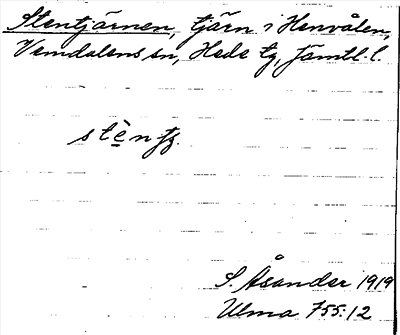 Stentjärnen, tjärn i Henvålen,
Vemdalens sn, Hede tg, Jämtl. l.
stèn-
S. Åsander 1919
Ulma 755:12